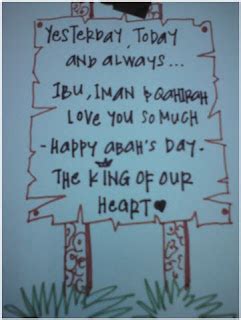 Yesterday, Today
and always...
Ibu, Iman & Qahirah
love you so much
- Happy Abah's Day -
The King of our
Heart♥